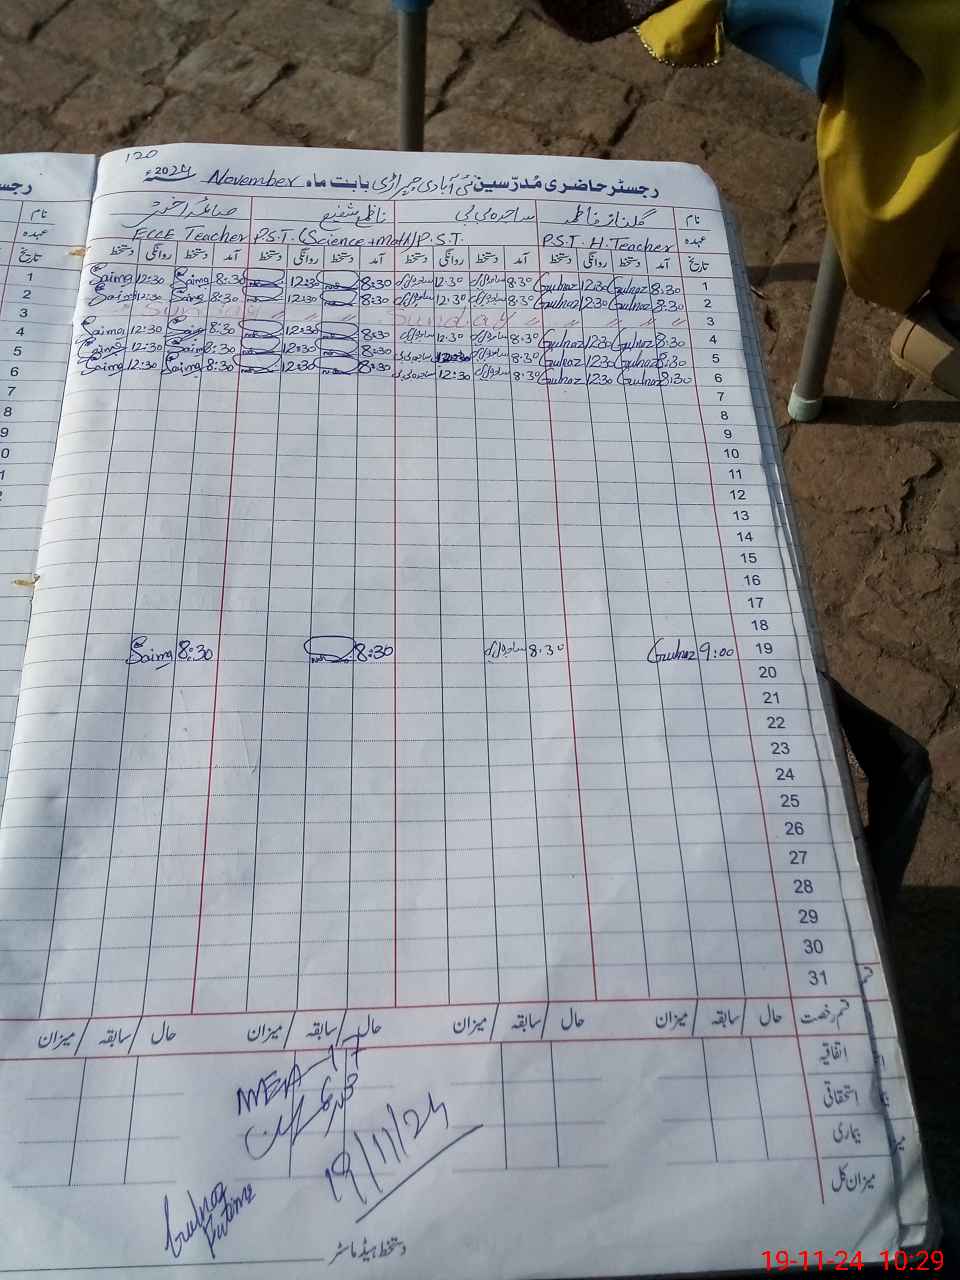 120
رجسٹر حاضری مُدرّسین نئی آبادی چیراڑی بابت ماہ November 2024ء
نام گلناز فاطمہ ساجدہ بی بی ناظمہ شفیع صائمہ اختر
عہدہ P.S.T. H.Teacher P.S.T. P.S.T. (Science+math) ECCE Teacher
تاریخ آمد دستخط روانگی دستخط آمد دستخط روانگی دستخط آمد دستخط روانگی دستخط آمد دستخط روانگی دستخط
1 8.30 Gulnaz 12:30 Gulnaz 8.30 12.30 8:30 12:30 8:30 Saima 12:30 Saima
2 8.30 Gulnaz 12:30 Gulnaz 8.30 12.30 8:30 12:30 8:30 Saima 12:30 Saima
3 〃 〃 〃 〃 Sunday 〃 〃 Sunday
4 8:30 Gulnaz 12:30 Gulnaz 8.30 12.30 8:30 12:30 8:30 Saima 12:30 Saima
5 8:30 Gulnaz 12:30 Gulnaz 8.30 12:30 8:30 12:30 8:30 Saima 12:30 Saima
6 8:30 Gulnaz 12:30 Gulnaz 8.30 12:30 8:30 12:30 8:30 Saima 12:30 Saima
7
8
9
10
11
12
13
14
15
16
17
18
19 9:00 Gulnaz 8.30 8:30 8:30 Saima
20
21
22
23
24
25
26
27
28
29
30
31
قسم رخصت حال / سابقہ / میزان حال / سابقہ / میزان حال / سابقہ / میزان حال / سابقہ / میزان
اتفاقیہ
استحقاقی
بیماری
میزان کل
MEA-17
19/11/24
Gulnaz
Fatima
دستخط ہیڈ ماسٹر
19-11-24 10:29